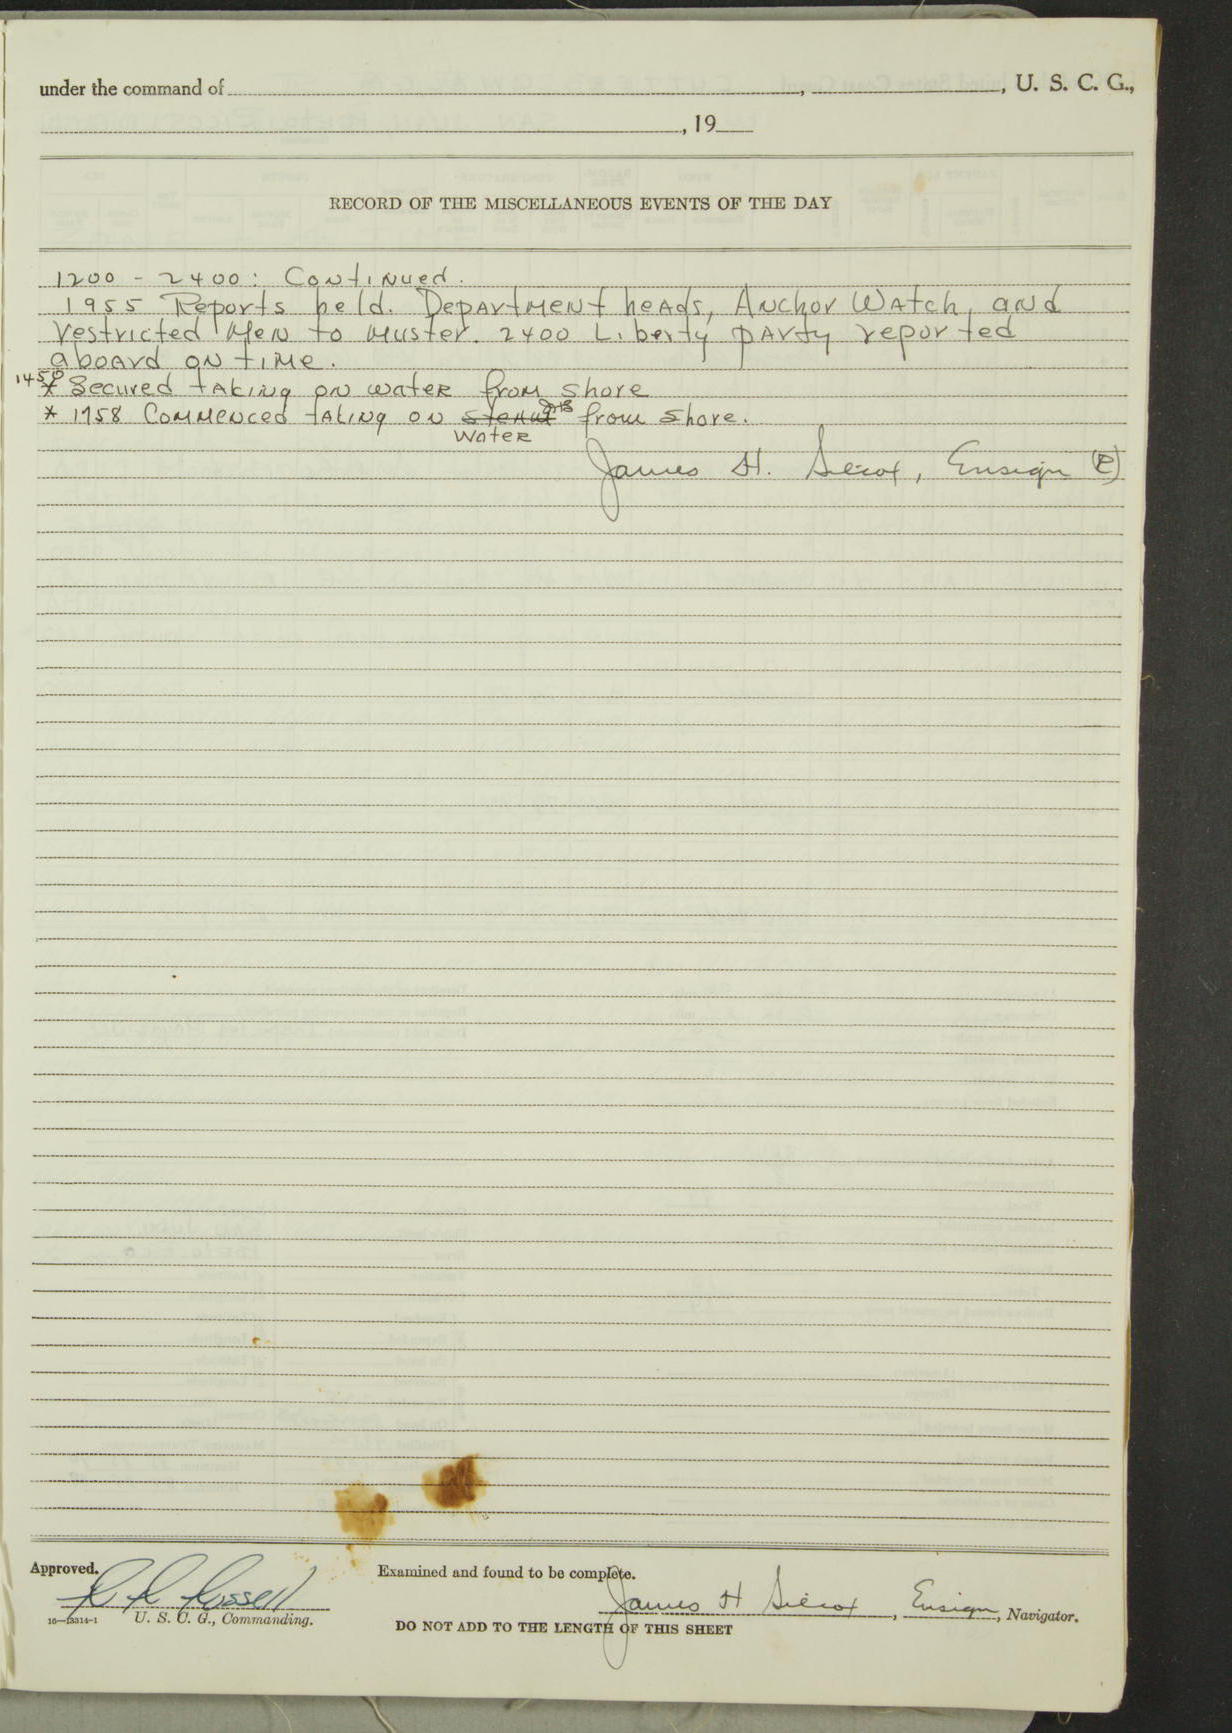 under the command of , , U. S. C. G.,
, 19
RECORD OF THE MISCELLANEOUS EVENTS OF THE DAY
1200 - 2400: Continued.
1955 Reports held. Department heads, Anchor Watch, and
restricted Men to Muster. 2400 Liberty party reported
aboard on time.
1450
* Secured taking on water from shore
* 1758 Commenced taking on steam from shore.
water
James H. Silcox, Ensign (E)
Approved.
R R Russell
16—13314-1 U. S. C. G., Commanding.
Examined and found to be complete.
James H Silcox, Ensign, Navigator.
DO NOT ADD TO THE LENGTH OF THIS SHEET